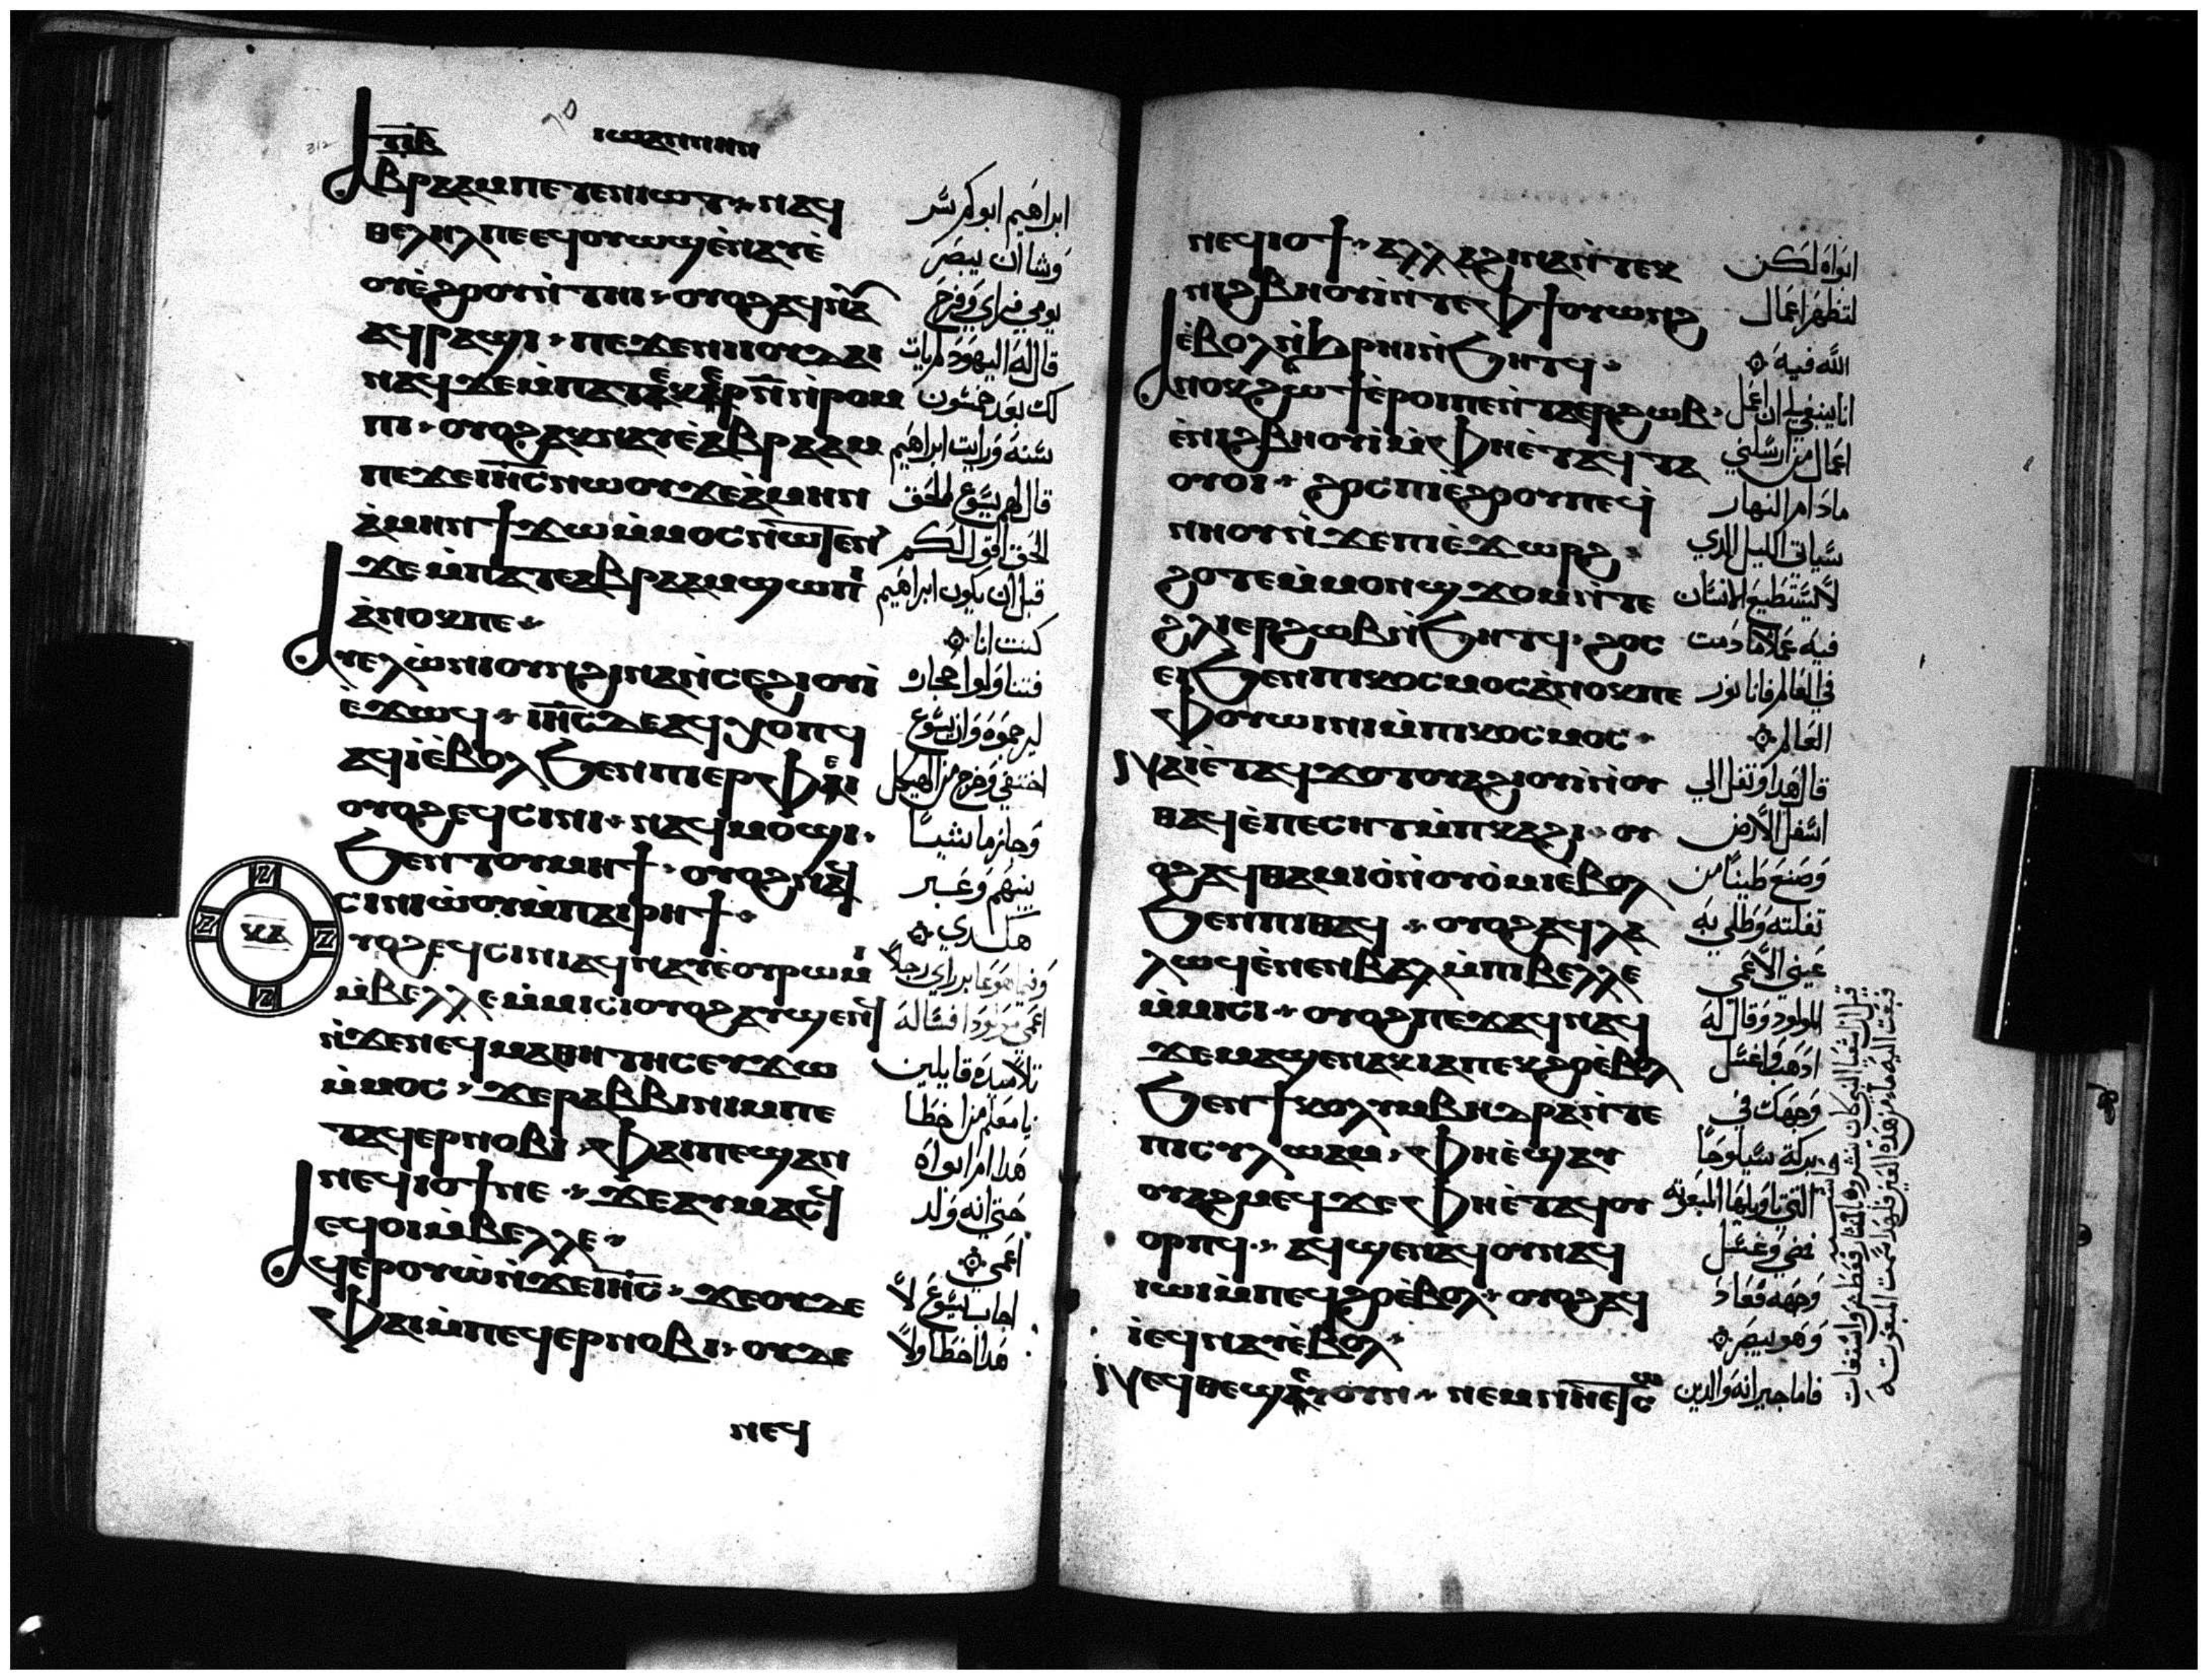 ⲓⲱⲁⲛⲛⲏⲛ
ⲁⲃⲣⲁⲁⲙ ⲡⲉⲧⲉⲛⲓⲱⲧ ⲛⲁϥ
ⲑⲉⲗⲏⲗ ⲡⲉ ⲉϥⲟⲩⲱϣ ⲉ̀ⲛⲁⲩ ⲉ̀
ⲟⲩⲉ̀ϩⲟⲟⲩ ⲛ̀ⲧⲏⲓ ⲟⲩⲟϩ ⲁϥⲛⲁⲩ
ⲁϥⲣⲁϣⲓ ⲡⲉϫⲉ ⲛⲓⲓⲟⲩⲇⲁⲓ
ⲡⲓ ⲟⲩⲟϩ ⲁⲕⲛⲁⲩ ⲉ̀ⲁⲃⲣⲁⲁⲙ
ⲡⲉϫⲉ ⲓⲏ̅ⲥ̅ ⲛⲱⲟⲩ ϫⲉ ⲁ̀ⲙⲏⲛ
ⲁ̀ⲙⲏⲛ ϯϫⲱ ⲙ̀ⲙⲟⲥ ⲛⲱⲧⲉⲛ
ϫⲉ ⲙ̀ⲡⲁⲧⲉ ⲁⲃⲣⲁⲁⲙ ϣⲱⲡⲓ
ⲁ̀ⲛⲟⲕ ⲡⲉ
ⲁⲩⲉⲗ ⲱ̀ⲛⲓ ⲟⲩⲛ ϩⲓⲛⲁ ⲛ̀ⲥⲉϩⲓⲟⲩⲓ̀
ⲉ̀ϫⲱϥ ⲓⲏ̅ⲥ̅ ⲇⲉ ⲁϥⲭⲟⲡϥ
ⲁϥⲓ̀ ⲉ̀ⲃⲟⲗ ϧⲉⲛ ⲡⲓⲉⲣⲫⲉⲓ
ⲟⲩⲟϩ ⲉϥⲥⲓⲛⲓ ⲛⲁϥⲙⲟϣⲓ
ϧⲉⲛ ⲧⲟⲩⲙⲏϯ ⲟⲩⲟϩ ⲛⲁϥ
ⲥⲓⲛⲓⲱ̀ⲟⲩ ⲙ̀ⲡⲁⲓⲣⲏϯ
ⲩⲟϩ ⲉϥⲥⲓⲛⲓ ⲁϥⲛⲁⲩ ⲉ̀ⲟⲩⲣⲱⲙⲓ
ⲙ̀ⲃⲉⲗⲗⲉ ⲙ̀ⲙⲓⲥⲓ ⲟⲩⲟϩ ⲁⲩϣⲉⲛϥ
ⲛ̀ϫⲉ ⲛⲉϥⲙⲁⲑⲏⲧⲏⲥ ⲉⲩϫⲱ
ⲙ̀ⲙⲟⲥ ϫⲉ ⲣⲁⲃⲃⲓ ⲛⲓⲙ ⲡⲉ
ⲧⲁϥⲉⲣⲛⲟⲃⲓ ⲫⲁⲓ ⲡⲉ ϣⲁⲛ
ⲛⲉϥⲓⲟϯ ⲛⲉ ϫⲉ ⲁⲩⲙⲁⲥϥ
ⲉϥⲟⲓ ⲙ̀ⲃⲉⲗⲗⲉ
ⲁϥⲉⲣⲟⲩⲱ̀ ⲛ̀ϫⲉ ⲓⲏ̅ⲥ̅ ϫⲉ ⲟⲩⲇⲉ
ⲫⲁⲓ ⲙ̀ⲡⲉϥⲉⲣⲛⲟⲃⲓ ⲟⲩⲇⲉ
ⲛⲉϥ
ابراهيم ابوكم يسر
وشا ان يبصر
يومي فراي وفرح
قال له اليهود لم يات
لك بعد خمسون
سنة ورايت ابراهيم
قال لهم يسوع الحق
الحق اقول لكم
قبل ان يكون ابراهيم
كنت انا
فتناولوا حجاره
ليرجموه وان يسوع
اختفي وخرج من الهيكل
وجاز ماشيا
بينهم وعبر
هكذي
وفيما هو عابر راي رجلا
تلاميذه قايلين
يا معلم من اخطا
هذا ام ابواه
حتي انه ولد
اعمي
اجاب يسوع لا
هذا اخطا ولا
ⲛⲉϥⲓⲟϯ ⲁⲗⲗⲁ ϩⲓⲛⲁ ⲛ̀ⲧⲉ
ⲛⲓϩⲃⲏⲟⲩⲓ̀ ⲛ̀ⲧⲉ ⲫϯ ⲟⲩⲱⲛϩ
ⲉ̀ⲃⲟⲗ ⲛ̀ϧⲣⲏⲓ ⲛ̀ϧⲏⲧϥ
ⲁⲛⲟⲕ ϩⲱϯ ⲉ̀ⲣⲟⲓ ⲡⲉ ⲛ̀ⲧⲁⲉⲣϩⲱⲃ
ⲉ̀ⲛⲓϩⲃⲏⲟⲩⲓ̀ ⲙ̀ⲫⲏ ⲉ̀ⲧⲁϥⲧⲁ
ⲟⲩⲟⲓ ϩⲟⲥ ⲡⲓⲉ̀ϩⲟⲟⲩ ⲡⲉ ϥ̀
ⲛⲏⲟⲩ ⲛ̀ϫⲉ ⲡⲓⲉ̀ϫⲱⲣϩ
ϩⲟⲧⲉ ⲙ̀ⲙⲟⲛ ϣϫⲟⲙ ⲛ̀ⲧⲉ
ϩⲗⲓ ⲉⲣϩⲱⲃ ⲛ̀ϧⲏⲧϥ ϩⲟⲥ
ⲉⲓϧⲉⲛ ⲡⲓⲕⲟⲥⲙⲟⲥ ⲁ̀ⲛⲟⲕ ⲡⲉ
ⲫⲟⲩⲱⲓⲛⲓ ⲙ̀ⲡⲓⲕⲟⲥⲙⲟⲥ
ⲛⲁⲓ ⲉ̀ⲧⲁϥϫⲟⲧⲟⲩ ⲁϥϩⲓⲟⲩⲓ̀ ⲛ̀ⲟⲩ
ⲑⲁϥ ⲉ̀ⲡⲉⲥⲏⲧ ⲙ̀ⲡⲕⲁϩⲓ ⲟⲩ
ⲟϩ ⲁϥⲑⲁⲙⲓⲟ̀ ⲛ̀ⲟⲩⲟ̀ⲙⲓ ⲉ̀ⲃⲟⲗ
ϧⲉⲛ ⲡⲓⲑⲁϥ ⲟⲩⲟϩ ⲁϥⲗⲁ
ⲗⲱϥ ⲉ̀ⲛⲉⲛⲃⲁⲗ ⲙ̀ⲡⲓⲃⲉⲗⲗⲉ
ⲙ̀ⲙⲓⲥⲓ ⲟⲩⲟϩ ⲡⲉϫⲁϥ ⲛⲁϥ
ϫⲉ ⲙⲁϣⲉⲛⲁⲕ ⲓⲁ ⲡⲉⲕϩⲟ ⲉ̀ⲃⲟⲗ
ϧⲉⲛ ϯⲕⲟⲗⲩⲙⲃⲏⲑⲣⲁ ⲛ̀ⲧⲉ
ⲡⲓⲥⲩⲗⲱⲁⲙ ⲫⲏ ⲉ̀ϣⲁⲩ
ⲟⲩⲁϩⲙⲉϥ ϫⲉ ⲫⲏ ⲉ̀ⲧⲁⲩⲟⲩ
ⲟⲣⲡϥ ⲁϥϣⲉⲛⲁϥ ⲟⲩⲛ ⲁϥ
ⲓⲱⲓ ⲙ̀ⲡⲉϥϩⲟ ⲉ̀ⲃⲟⲗ ⲟⲩⲟϩ ⲁϥ
ⲓ̀ ⲉϥⲛⲁⲩ ⲉ̀ⲃⲟⲗ
ابواه لكن
لتظهر اعمال
الله فيه
انا ينبغي لي ان اعمل
اعمال من ارسلني
مادام النهار
سياتي الليل الذي
لا يستطيع الانسان
فيه عملا ما دمت
في العالم فانا نور
العالم
قال هذا وتفل الي
اسفل الارض
وصنع طينا من
تفلته وطلي به
عيني الاعمي
المولود وقال له
اذهب واغسل
وجهك في
بركة سيلوحا
التي تاويلها المبعوثه
فمضي وغسل
وجهه فعاد
وهو يبصر
فاما جيرانه والذين